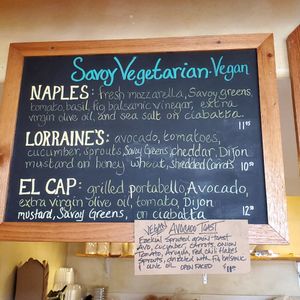 Savoy Vegetarian-Vegan
NAPLES: fresh mozzarella, Savoy Greens,
tomato, basil, fig balsamic vinegar, extra
virgin olive oil, and sea salt on ciabatta.
11.95
LORRAINE'S: avocado, tomatoes,
cucumber, sprouts, Savoy Greens, cheddar, Dijon
mustard on honey wheat, shredded Carrots
EL CAP: grilled portabello, Avocado,
extra virgin olive oil, tomato, Dijon
mustard, Savoy Greens, on ciabatta
VEGAN AVOCADO TOAST
Ezekiel Sprouted grain toast
Avo, cucumber, carrots, onion
Tomato, Arugula, red chili flakes
Sprouts, drizzled with fig balsamic
& olive oil. OPEN FACED